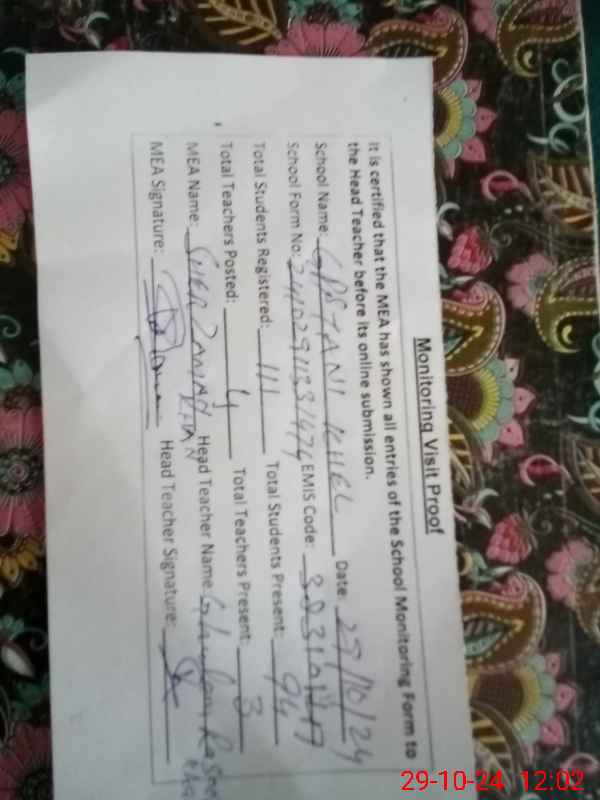 Monitoring Visit Proof
It is certified that the MEA has shown all entries of the School Monitoring Form to
the Head Teacher before its online submission.
School Name: GPS TANI KHEL Date: 29/10/24
School Form No: EMIS Code:
Total Students Registered: 111 Total Students Present: 94
Total Teachers Posted: 4 Total Teachers Present: 3
MEA Name: SHER ZAMAN KHAN Head Teacher Name: Ghulam
MEA Signature: Head Teacher Signature:
29-10-24 12:02